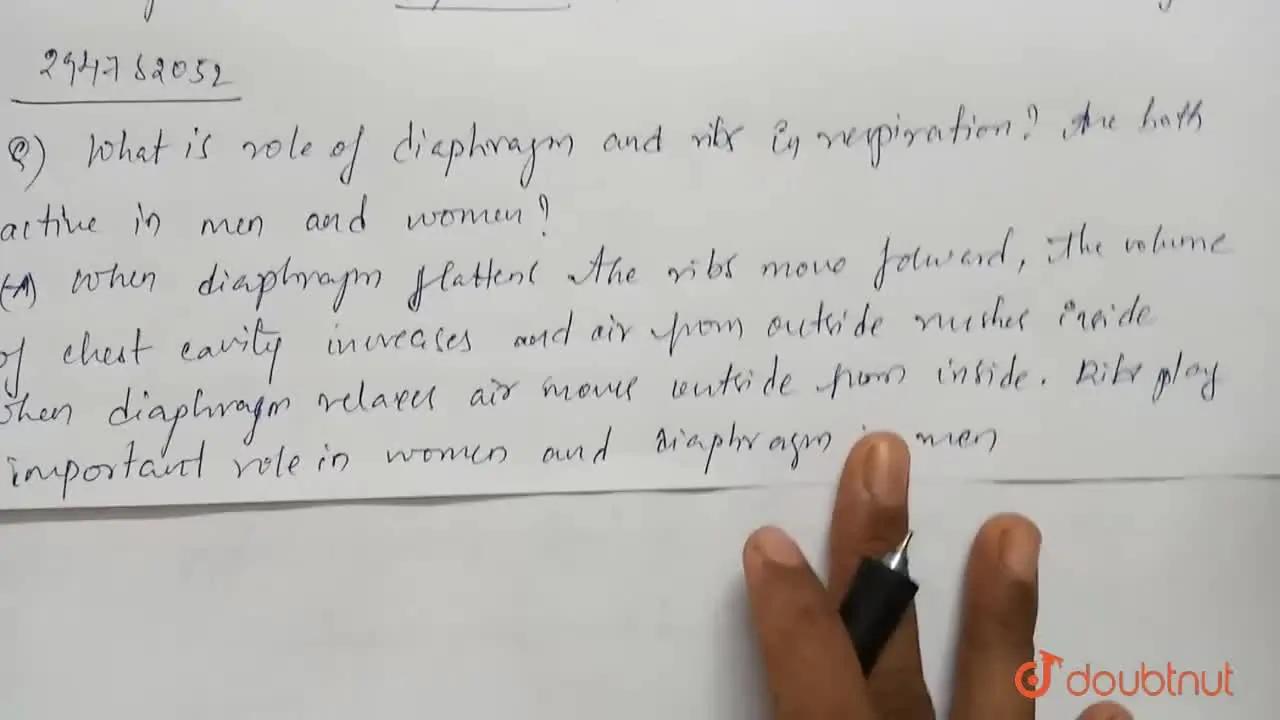 294782052
Q) What is role of diaphragm and ribs in respiration? Are both
active in men and women?
(A) When diaphragm flattens the ribs move forward, the volume
of chest cavity increases and air from outside rushes inside
when diaphragm relaxes air moves outside from inside. Ribs play
important role in women and diaphragm men
doubtnut